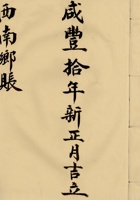 咸豐拾年新正月吉立
西南鄉賬